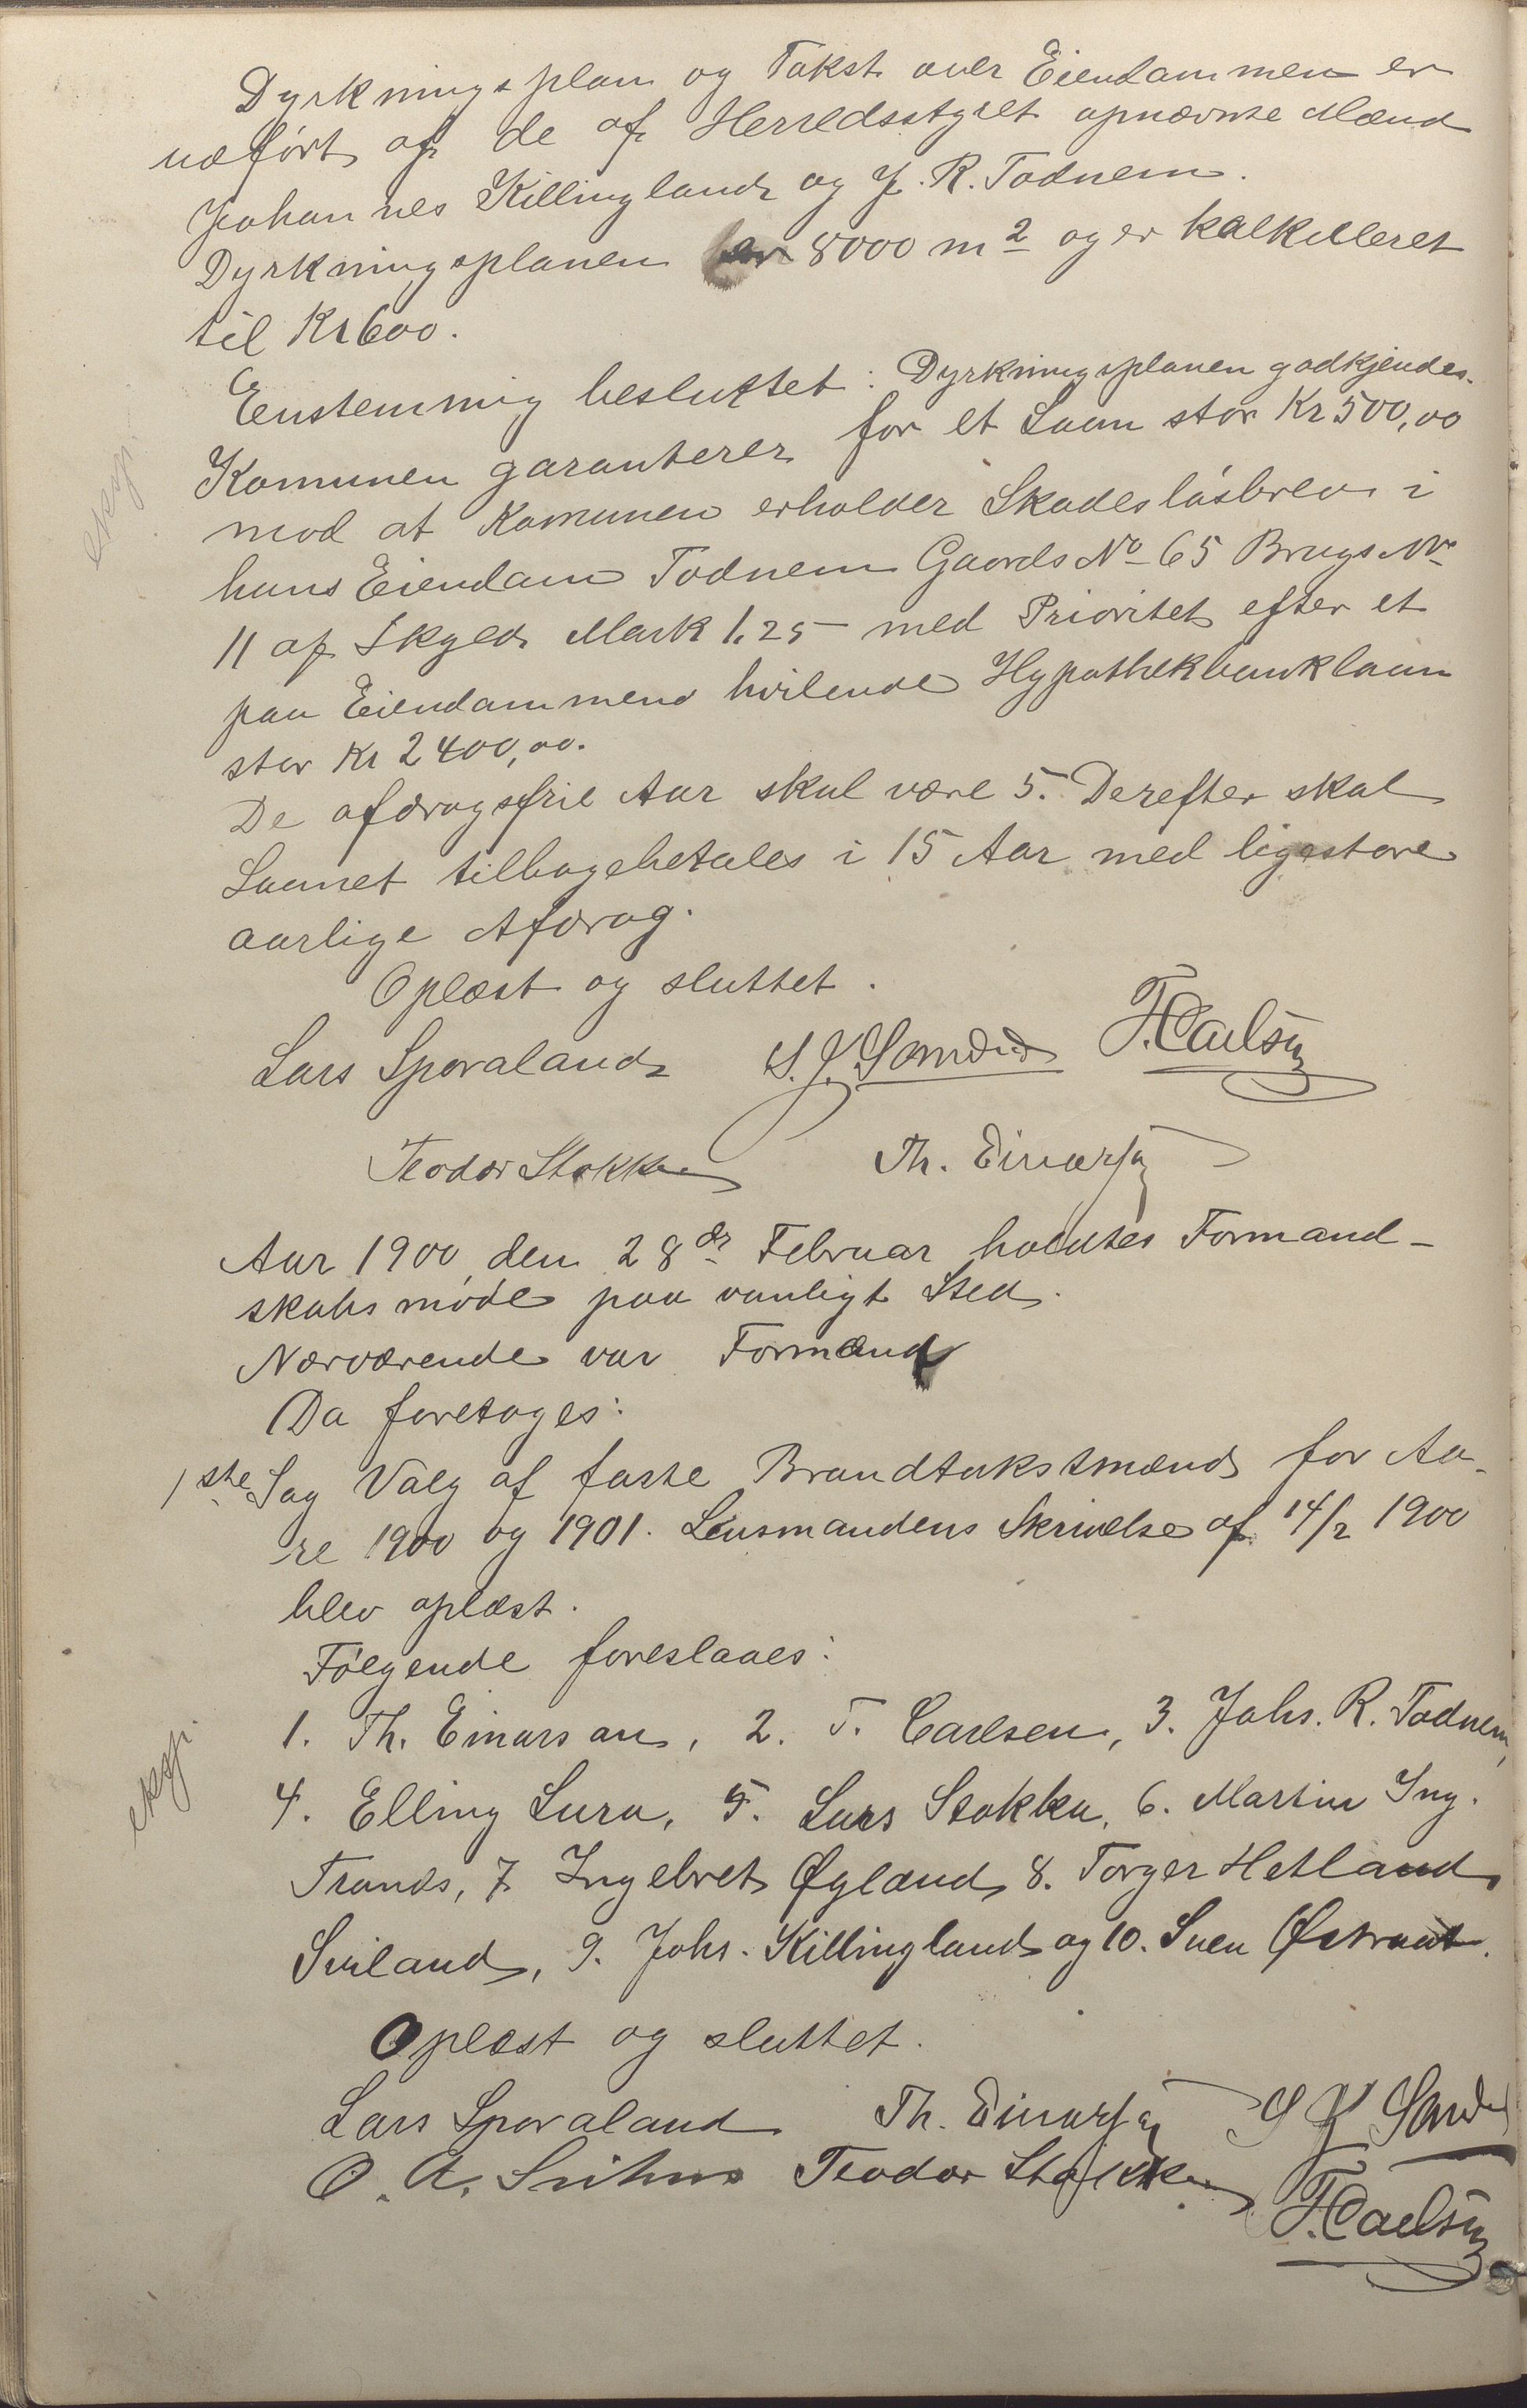 Dyrkningsplan og Takst over Eiendammen er
udført af de af Herredsstyret opnævnte Mænd
Johannes Killingland og J. R. Todnem.
Dyrkningsplanen er 8000 m2 og er kalkulleret
til Kr 600.
Enstemmig besluttet: Dyrkningsplanen godkjendes.
Komunen garanterer for et Laan stor Kr 500,00
mod at Komunen erholder Skadesløsbrev i
hans Eiendam Todnem Gaards No 65 Brugs No
11 af Skyld Mark 1,25 med Prioritet efter et
paa Eiendammen hvilende Hypothekbanklaan
stor Kr 2400,00.
De afdragsfrie Aar skal være 5. Derefter skal
Laanet tilbagebetales i 15 Aar med ligestore
aarlige Afdrag.
Oplæst og sluttet.
Lars Sporaland S. J. Somded T. Carlsen
Teodor Stokka Th. Einarsen
Aar 1900 den 28de Februar holdtes Formand-
skabsmøde paa vanligt Sted.
Nærværende var Formænd
Da foretoges:
1ste Sag Valg af faste Brandtakstmænd for Aa-
re 1900 og 1901. Lensmandens Skrivelse af 14/2 1900
blev oplæst.
Følgende foreslaaes:
1. Th. Einarsen, 2. T. Carlsen, 3. Johs. R. Todnem,
4. Elling Lura, 5. Lars Stokka, 6. Martin Ing.
Tronds, 7. Ingebret Øgland, 8. Torger Hetland
Sviland, 9. Johs. Killingland og 10. Sven Østraat.
Oplæst og sluttet.
Lars Sporaland Th. Einarsen
O. A. Teodor Stokka T. Carlsen
eksp.
eksp.